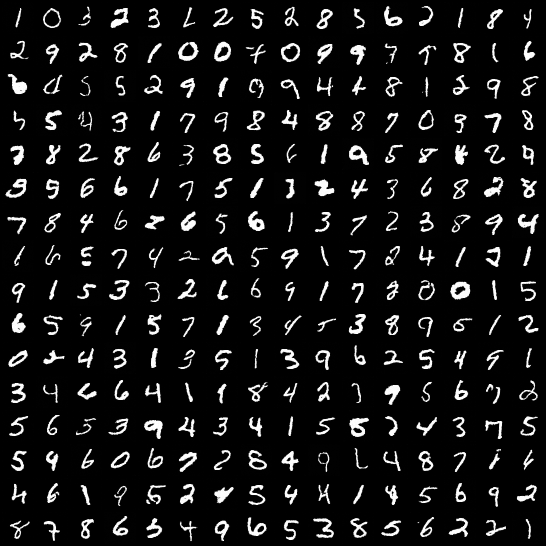 1 0 3 2 3 1 2 5 2 8 5 6 2 1 8 4
2 9 2 8 1 0 0 7 0 9 9 7 7 8 1 6
6 0 5 5 2 9 1 0 9 4 4 8 1 2 9 8
5 5 4 3 1 7 9 8 4 8 8 7 0 9 7 8
7 8 2 8 6 3 8 5 6 1 9 5 8 8 2 9
3 5 6 6 1 7 5 1 3 2 4 3 6 8 2 8
7 8 4 6 2 6 5 6 1 3 7 2 3 8 9 4
1 6 5 7 4 2 9 5 9 1 7 8 4 1 2 1
9 1 5 3 3 2 6 6 9 1 7 8 0 0 1 5
6 5 9 1 5 7 1 3 4 5 3 8 9 5 1 2
0 2 4 3 1 3 5 1 3 9 6 2 5 4 9 1
3 4 6 6 4 1 1 8 4 2 3 9 5 6 7 2
5 6 5 3 9 4 3 4 1 5 5 2 4 3 7 5
5 9 6 0 6 7 2 8 4 9 6 4 8 7 1 6
4 6 1 9 5 2 4 5 4 4 1 4 5 6 9 2
8 7 8 6 5 4 9 6 5 3 8 5 6 2 2 1